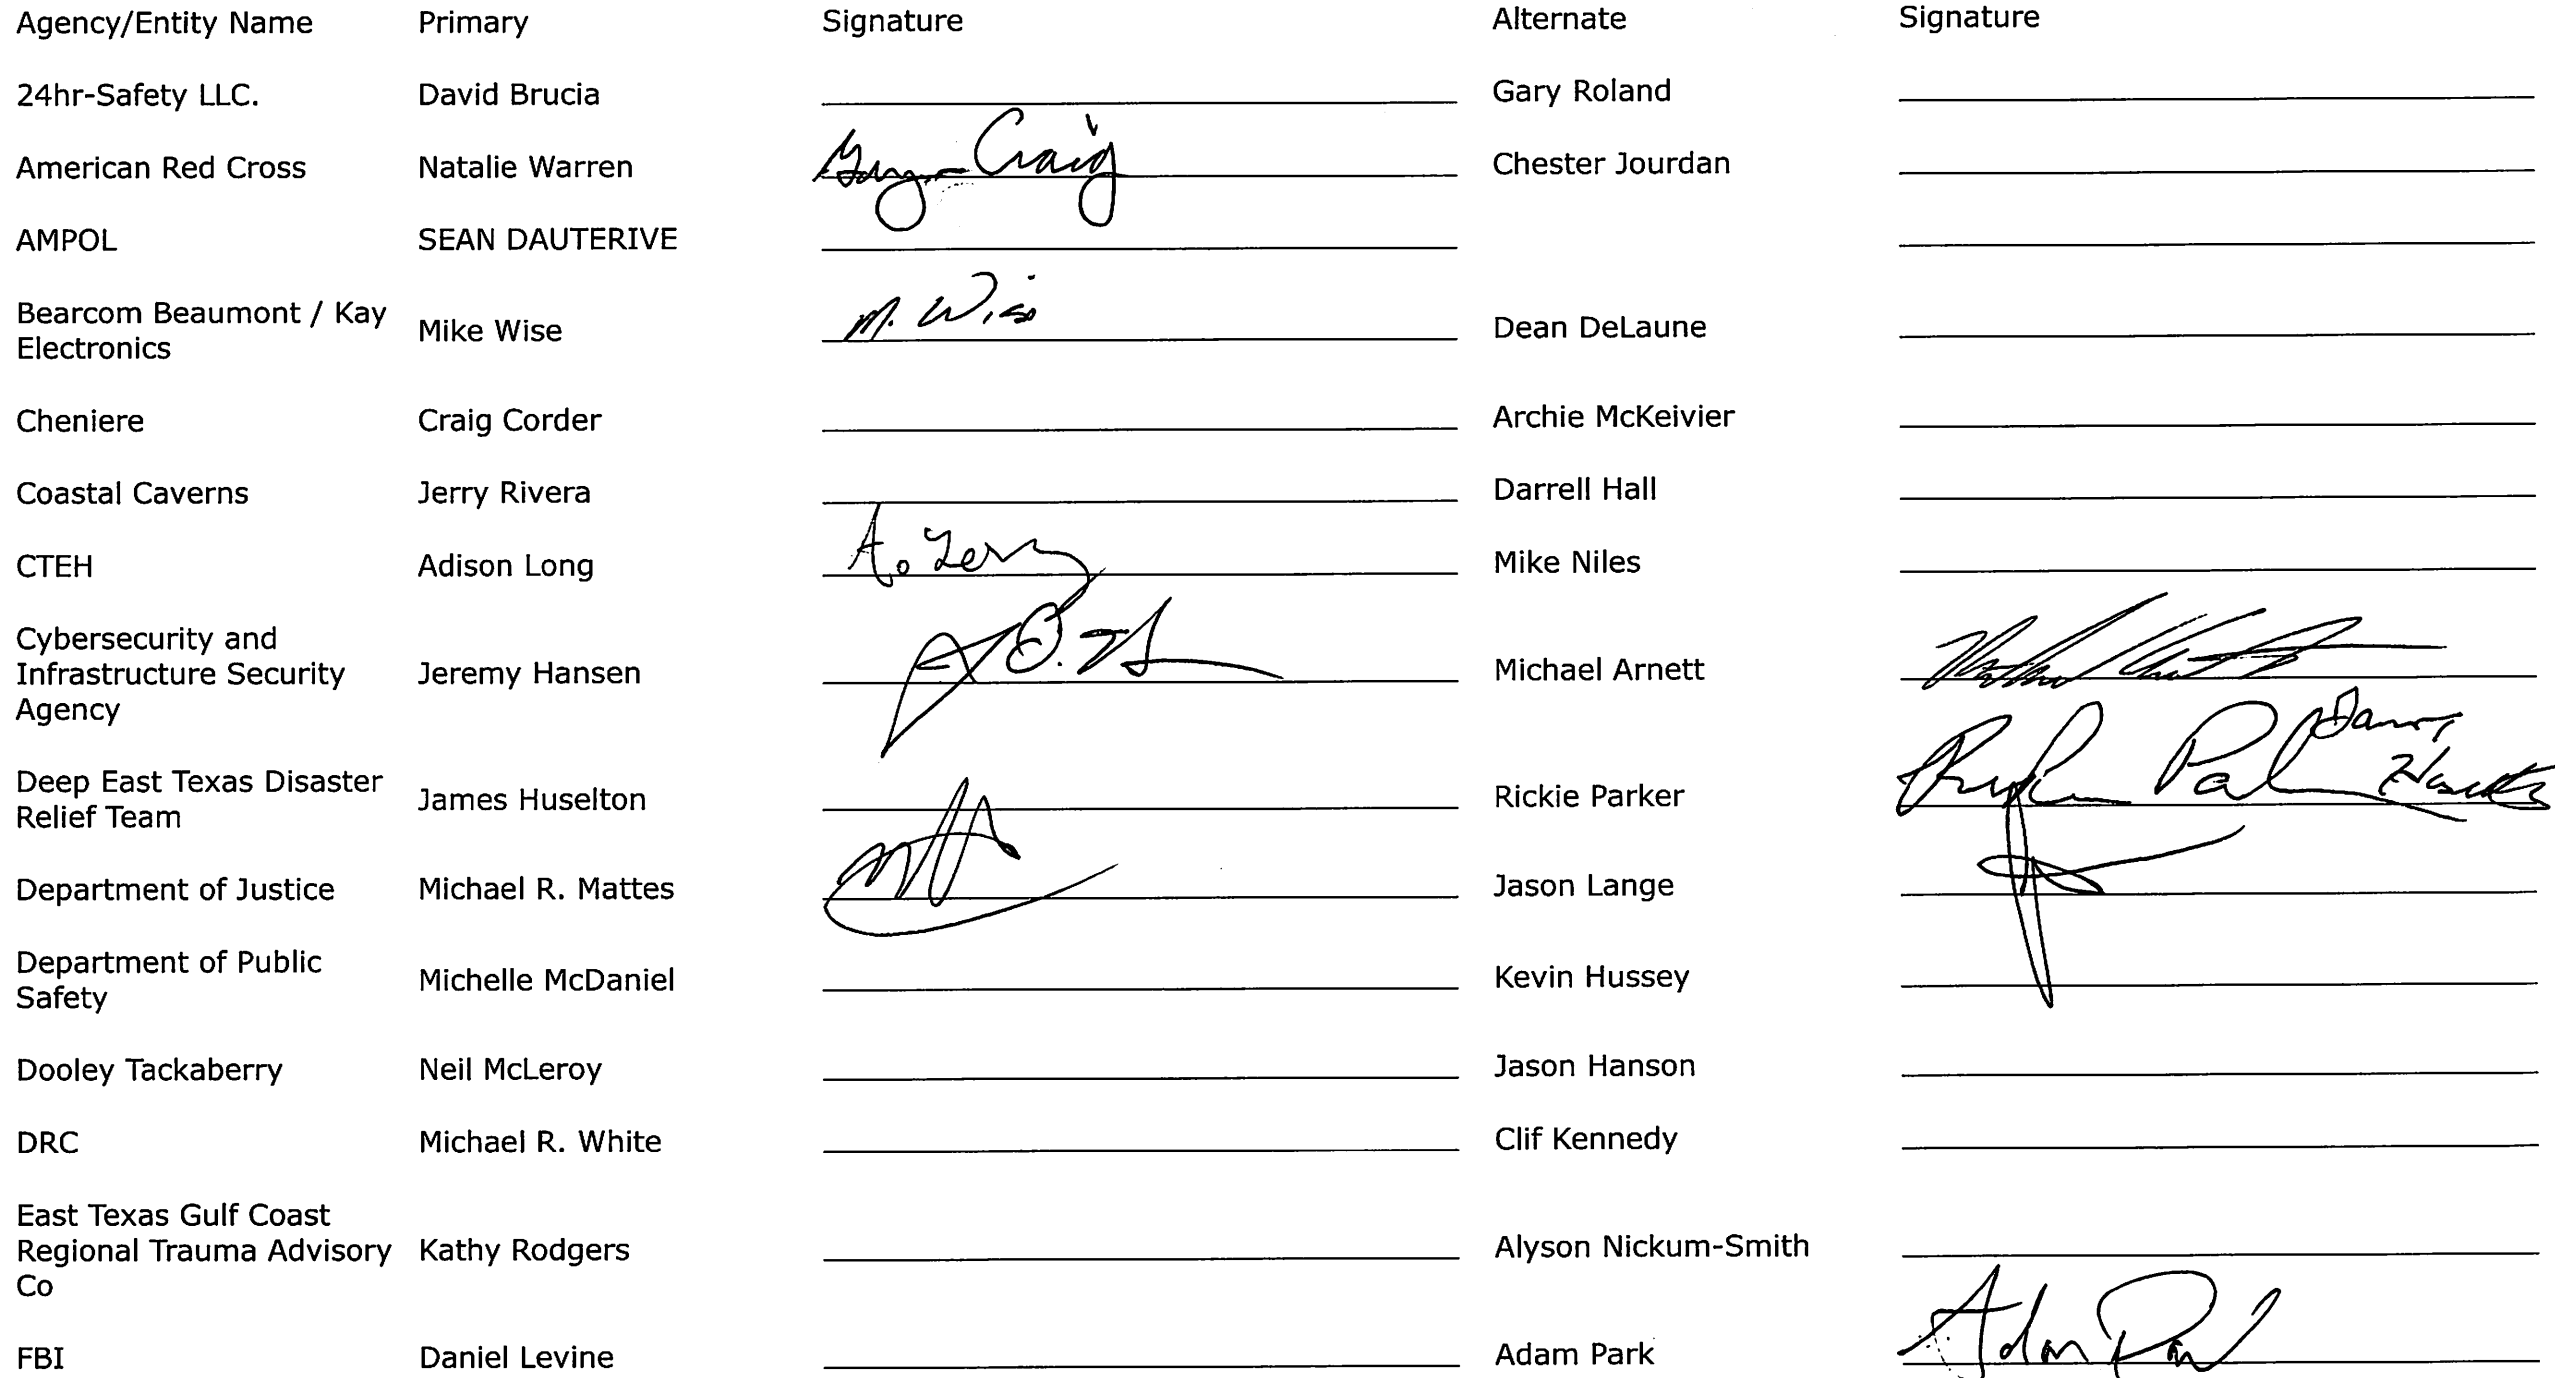 Agency/Entity Name Primary Signature Alternate Signature
24hr-Safety LLC. David Brucia Gary Roland
American Red Cross Natalie Warren Craig Chester Jourdan
AMPOL SEAN DAUTERIVE
Bearcom Beaumont / Kay
Electronics Mike Wise M. Wise Dean DeLaune
Cheniere Craig Corder Archie McKeivier
Coastal Caverns Jerry Rivera Darrell Hall
CTEH Adison Long A. Mike Niles
Cybersecurity and
Infrastructure Security
Agency Jeremy Hansen Michael Arnett
Deep East Texas Disaster
Relief Team James Huselton Rickie Parker
Department of Justice Michael R. Mattes Jason Lange
Department of Public
Safety Michelle McDaniel Kevin Hussey
Dooley Tackaberry Neil McLeroy Jason Hanson
DRC Michael R. White Clif Kennedy
East Texas Gulf Coast
Regional Trauma Advisory
Co Kathy Rodgers Alyson Nickum-Smith
FBI Daniel Levine Adam Park Adam Park